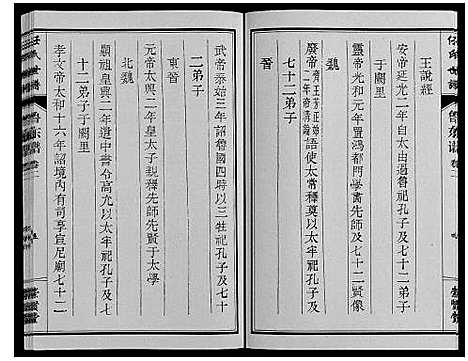 王說經
安帝延光二年自太山過魯祀孔子及七十二弟子
于闕里
靈帝光和元年置鴻都門學畫先聖及七十二賢像
魏
廢帝齊王芳正始二年帝講論語使太常釋奠以太牢祀孔子及
七十二弟子
晉
武帝泰始三年詔魯國四時以三牲祀孔子及七十
二弟子
東晉
元帝太興二年皇太子親釋奠先師先賢于太學
北魏
顯祖皇興二年遣中書令高允以太牢祀孔子及七
十二弟子于闕里
孝文帝太和十六年詔境內有司享宣尼廟七十二
任氏世譜
魯東譜
卷二